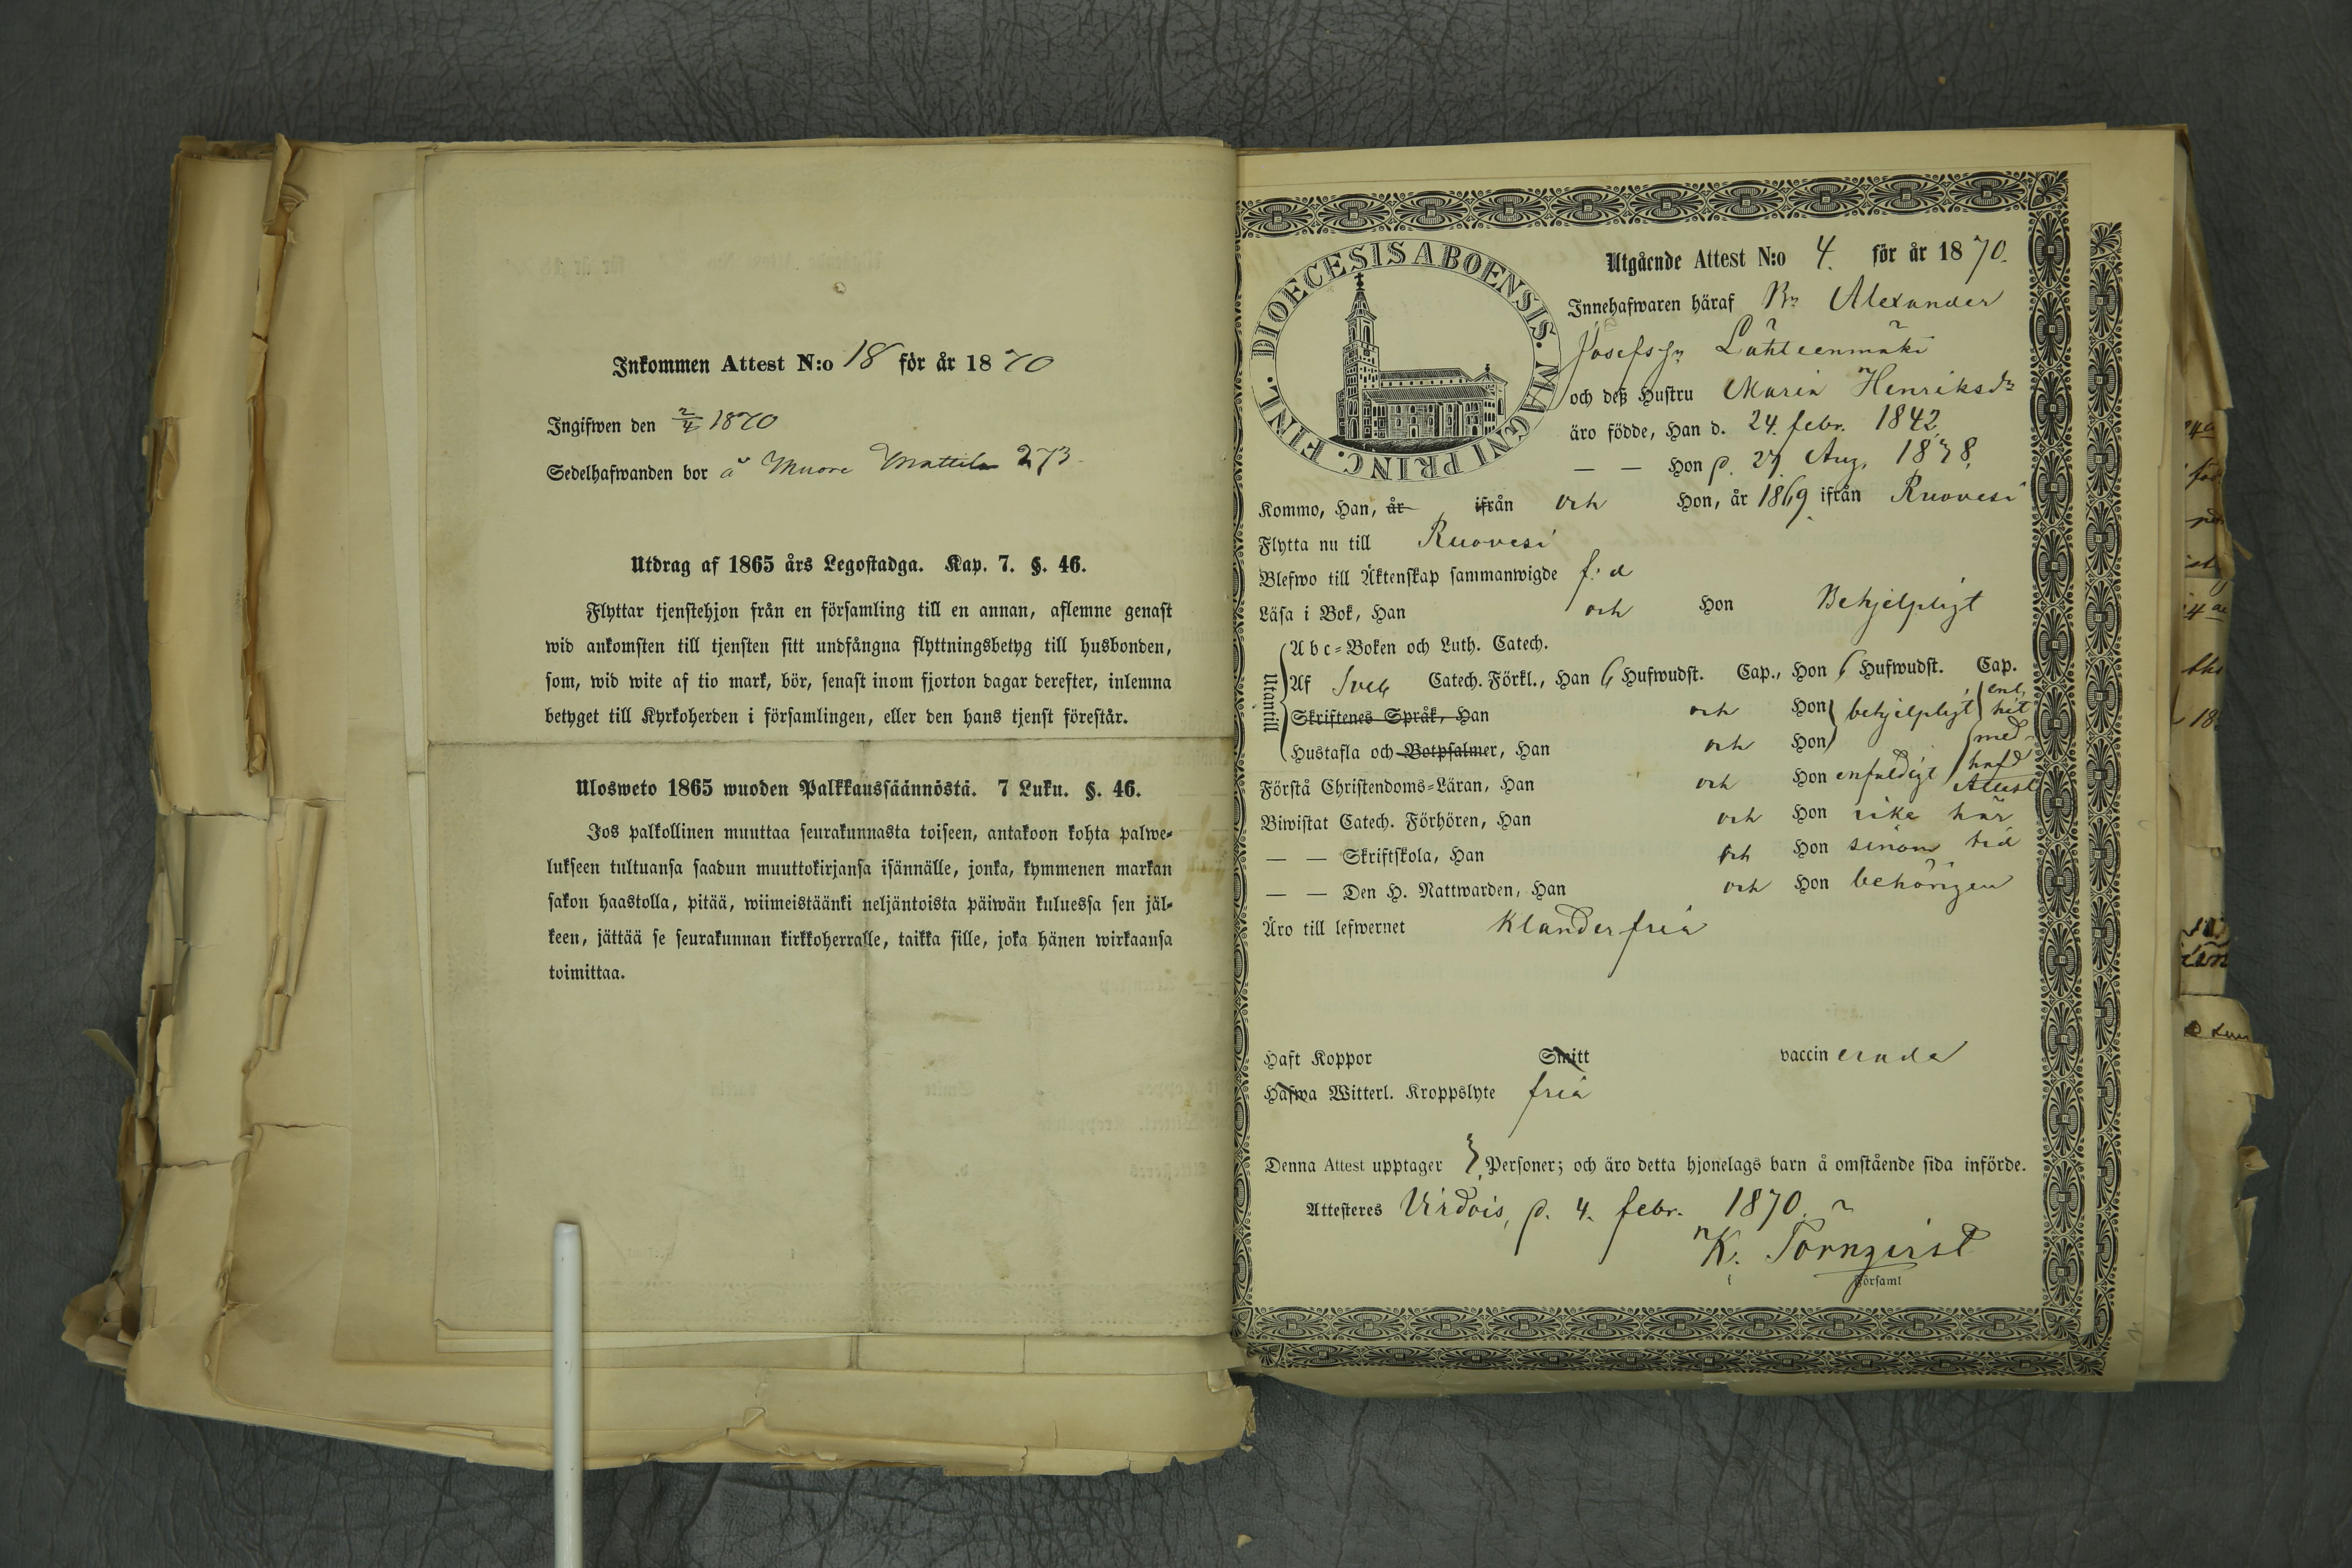 Inkommen Attest N:o 18 för år 1870
Ingifwen den 2/4 1870
Sedelhafwanden bor å Muore Mattila 273
Utdrag af 1865 års Legostadga. Kap. 7. §. 46.
Flyttar tjenstehjon från en församling till en annan, aflemne genast
wid ankomsten till tjensten sitt undfångna flyttningsbetyg till husbonden,
som, wid wite af tio mark, bör, senast inom fjorton dagar derefter, inlemna
betyget till Kyrkoherden i församlingen, eller den hans tjenst förestår.
Ulosweto 1865 wuoden Palkkaussäännöstä. 7 Luku. §. 46.
Jos palkollinen muuttaa seurakunnasta toiseen, antakoon kohta palwe-
lukseen tultuansa saadun muuttokirjansa isännälle, jonka, kymmenen markan
sakon haastolla, pitää, wiimeistäänki neljäntoista päiwän kuluessa sen jäl-
keen, jättää se seurakunnan kirkkoherralle, taikka sille, joka hänen wirkaansa
toimittaa.
DIOECESIS ABOENSIS. MAGNI PRINC. FINL.
Utgående Attest N:o 4. för år 1870.
Innehafwaren häraf Alexander
Josefss:n Lähteenmäki
och deß Hustru Maria Henriksdr
äro födde, Han d. 24 febr. 1842
— — Hon d. 27 Aug.
Kommo, Han, år ifrån och Hon, år 1869 ifrån Ruovesi
Flytta nu till Ruovesi
Blefwo till Äktenskap sammanwigde f. d
Läsa i Bok, Han och Hon Behjelpligt
Utantill
Abc-Boken och Luth. Catech.
Af Sveb Catech. Förkl., Han 6 Hufwudst. Cap., Hon 6 Hufwudst. Cap.
Skriftenes Språk, Han och Hon behjelpligt enl. hit
Hustafla och Botpsalmer, Han och Hon med-
Förstå Christendoms-Läran, Han och Hon enfaldigt hafd Attest
Biwistat Catech. Förhören, Han och Hon icke här
— — Skriftskola, Han och Hon sinom tid
— — Den H. Nattwarden, Han och Hon behörigen
Äro till lefwernet Klanderfria
Haft Koppor Smitt vaccinerade
Hafwa Witterl. Kroppslyte fria
Denna Attest upptager Personer; och äro detta hjonelags barn å omstående sida införde.
Attesteres Virdois, d. 4. febr. 1870.
K. Törnqvist
i Församl